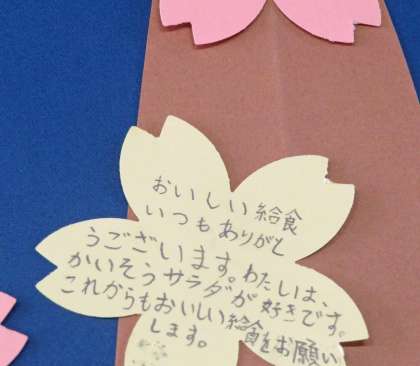 おいしい給食
いつもありがと
うございます。わたしは、
かいそうサラダが好きです。
これからもおいしい給食をお願い
します。